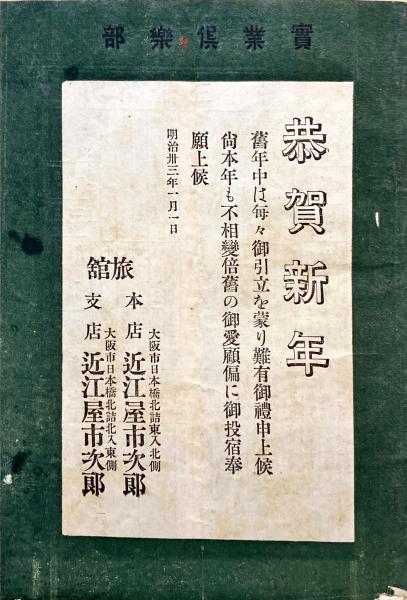 實業倶樂部
恭賀新年
舊年中は每々御引立を蒙り難有御禮申上候
尙本年も不相變倍舊の御愛顧偏に御投宿奉
願上候
明治卅三年一月一日
旅舘
大阪市日本橋北詰東入北側
本店 近江屋市次郞
大阪市日本橋北詰北入東側
支店 近江屋市次郞